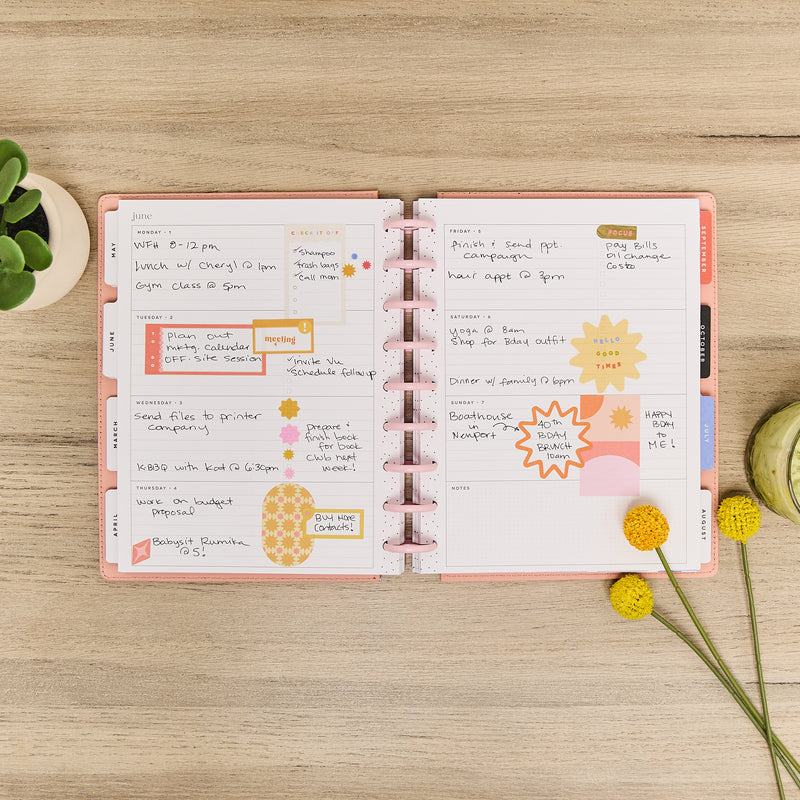 june
MONDAY • 1
WFH 8-12 pm
Lunch w/ Cheryl @ 1pm
Gym class @ 5pm
CHECK IT OFF
✓Shampoo
✓trash bags
✓Call mom
TUESDAY • 2
Plan out
mktg. calendar
OFF-Site session
meeting
!
✓Invite Viv
✓Schedule followup
WEDNESDAY • 3
Send files to printer
company
KBBQ with Kat @ 6:30pm
prepare &
finish book
for book
club next
week!
THURSDAY • 4
Work on budget
proposal
Babysit Rumika
@ 5!
BUY MORE
Contacts!
FRIDAY • 5
finish & send ppt.
campaign
hair appt @ 3pm
FOCUS
pay Bills
Oil change
Costco
SATURDAY • 6
yoga @ 8am
Shop for Bday outfit
Dinner w/ family @ 6pm
HELLO
GOOD
TIMES
SUNDAY • 7
Boathouse
in
Newport
40th
BDAY
BRUNCH
10am
HAPPY
BDAY
to
ME!
NOTES
MAY
JUNE
MARCH
APRIL
SEPTEMBER
OCTOBER
JULY
AUGUST